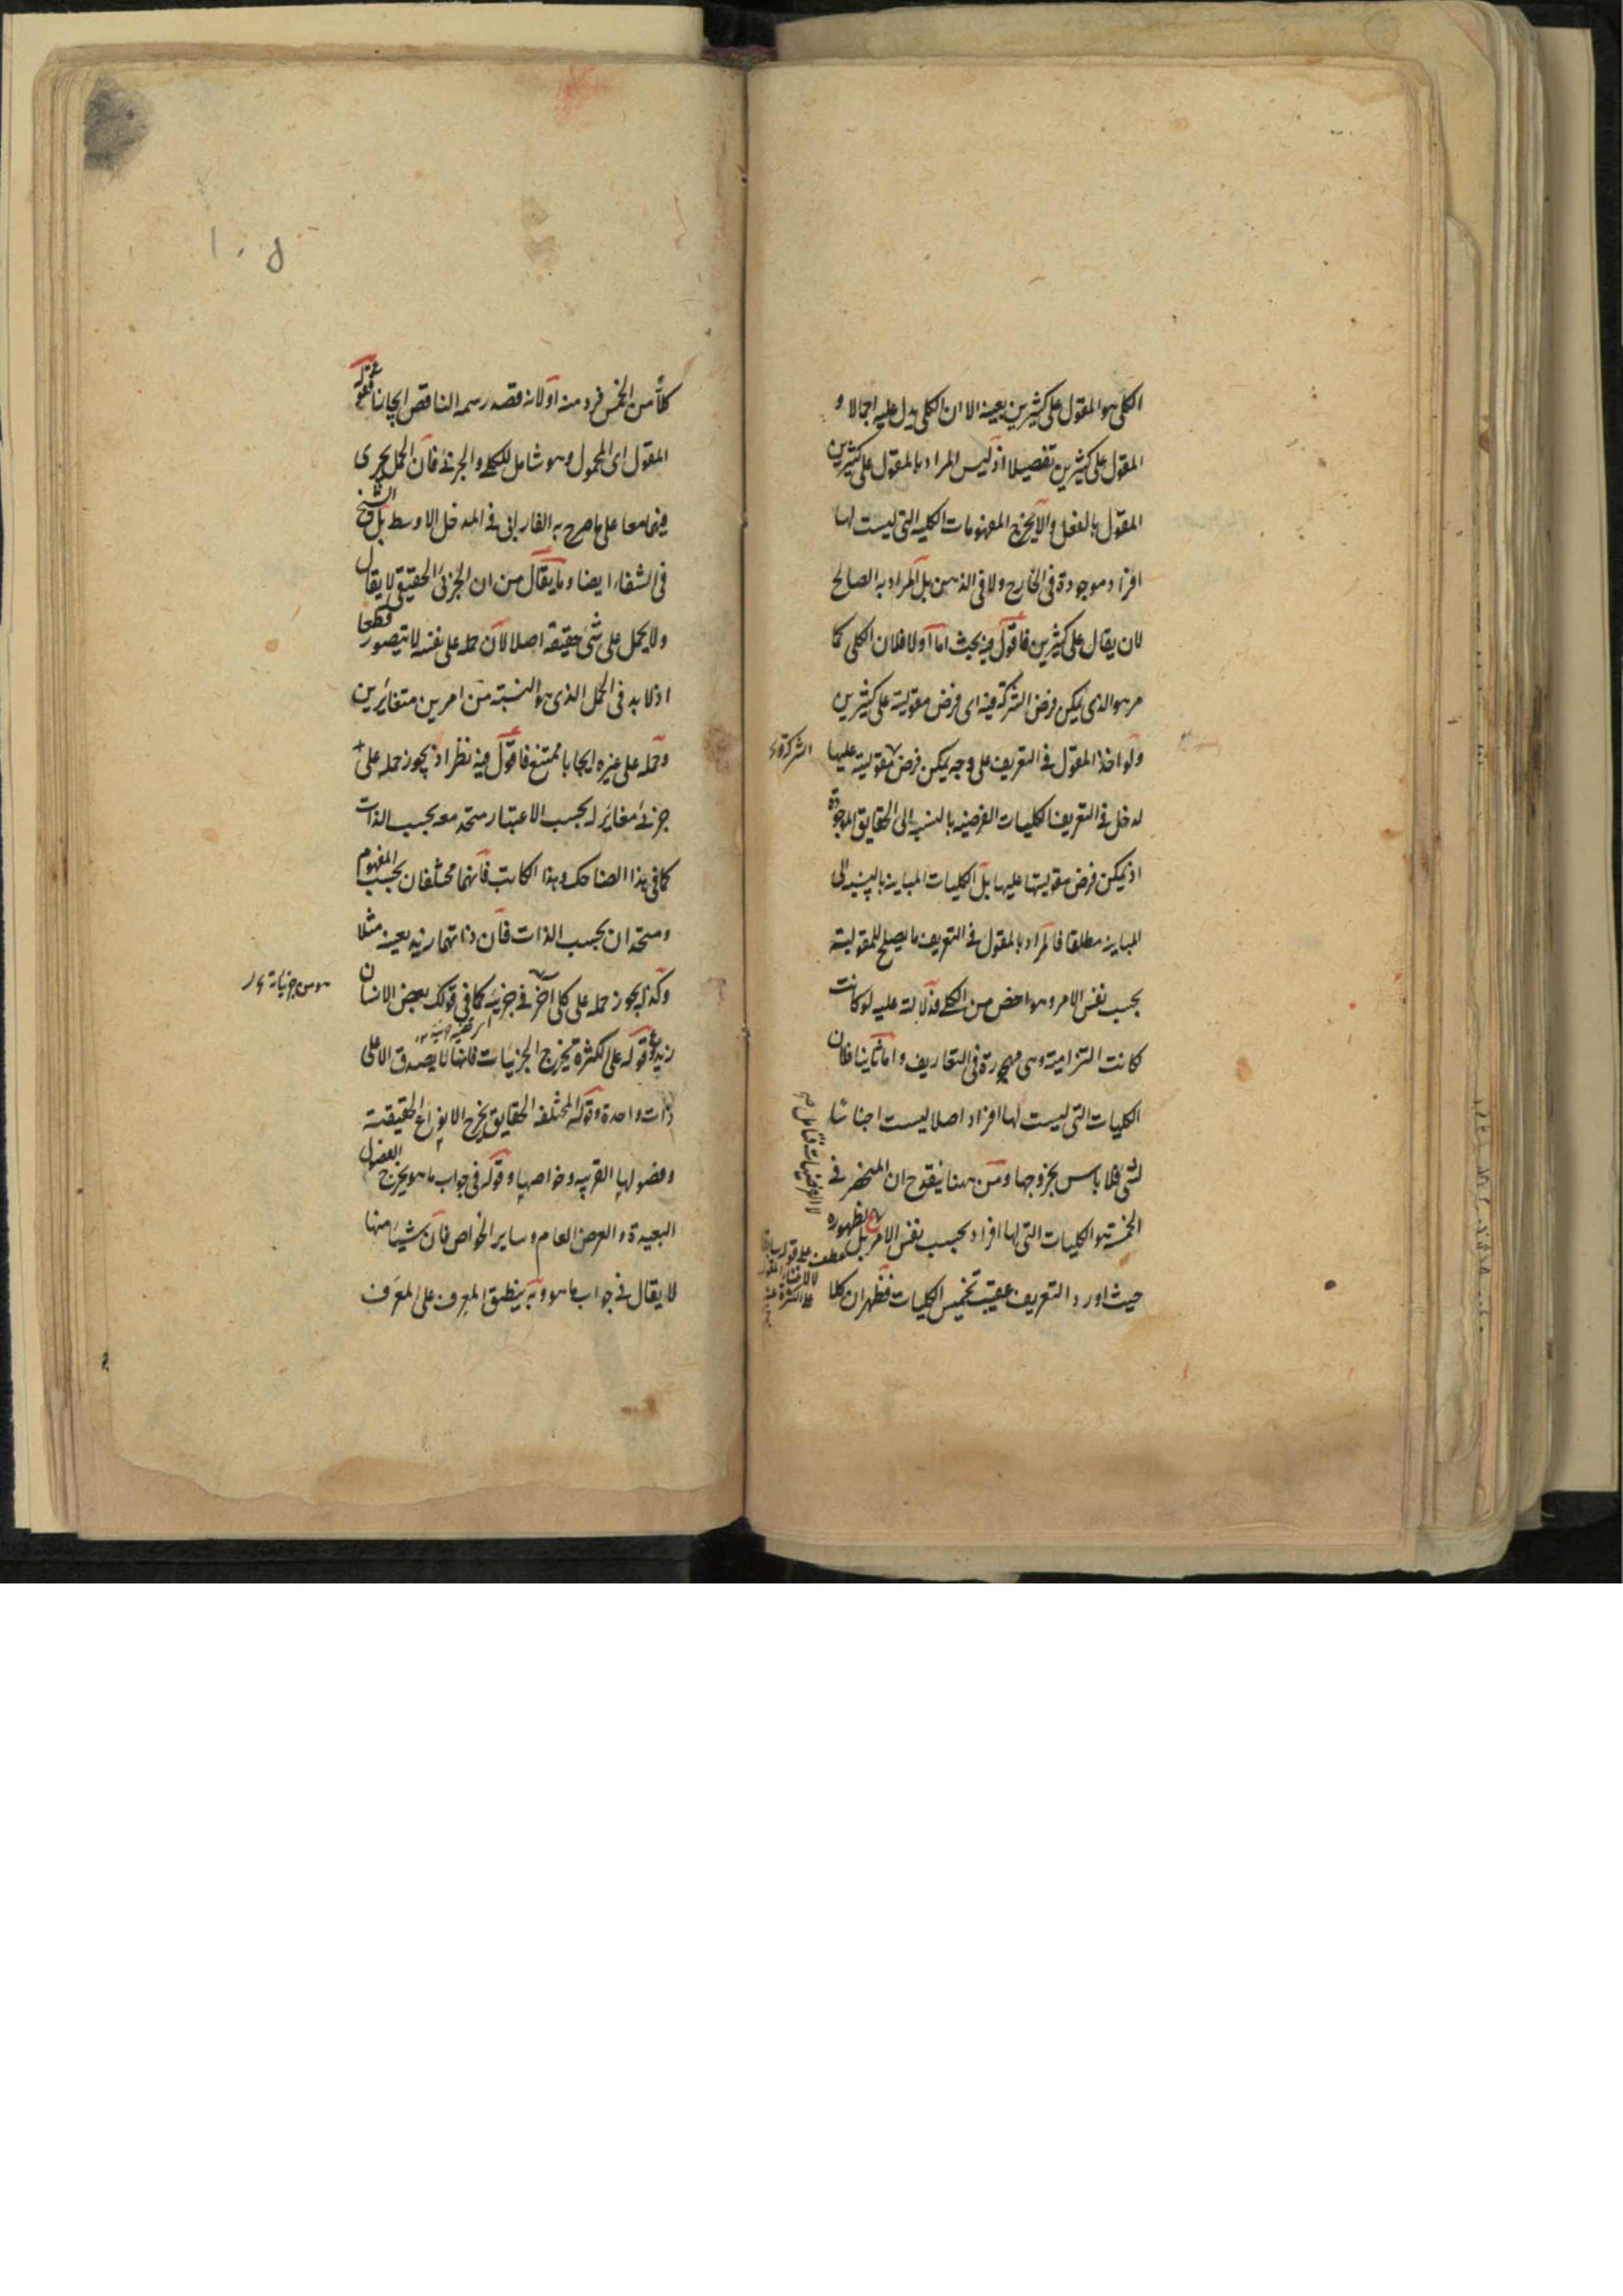 الكلى هو المقول على كثيرين بعينه الا ان الكلى يدل عليه اجمالا و
المقول على كثيرين تفصيلا اذ ليس المراد بالمقول على كثيرين
المقول بالفعل والا يخرج المفهومات الكليه التى ليست لها
افراد موجودة فى الخارج ولا فى الذهن بل المراد به الصالح
لان يقال على كثيرين فاقول فيه بحث اما اولا فلان الكلى كما
مر هو الذى يمكن فرض الشركة فيه اى فرض مقوليته على كثيرين
ولو اخذ المقول فى التعريف على وجه يمكن فرض مقوليته عليها
لدخل فى التعريف الكليات الفرضيه بالنسبه الى الحقايق الموجودة
اذ يمكن فرض مقوليتها عليها بل الكليات المباينه بالنسبه الى
المباينه مطلقا فالمراد بالمقول فى التعريف ما يصلح للمقوليته
بحسب نفس الامر وهو اخص من الكلى فدلالته عليه لو كانت
كانت التزامية وهى مهجورة فى التعاريف واما ثانيا فلان
الكليات التى ليست لها افراد اصلا ليست اجناسًا
لشئ فلا باس بخروجها ومن هنا ينقدح ان المنحصر فى
الخمسة هو الكليات التى لها افراد بحسب نفس الامر بل لظهوره
حيث اورد التعريف عقيب تخميس الكليات فظهر ان كلا
عطف على قوله
كلاً من الخمس فرد منه اولا نه قصد رسمه الناقص ايجازا فقوله
المقول اى المحمول وهو شامل للكلى والجزئى فان الحمل يجرى
فيهما معا على ما صرح به الفارابى فى المدخل الاوسط بل الشيخ
فى الشفاء ايضا وما يقال من ان الجزئى الحقيقى لا يقال
ولا يحمل على شئ حقيقة اصلا لان حمله على نفسه لا يتصور قطعا
اذ لا بد فى الحمل الذى هو النسبته من امرين متغايرين
وحمله على غيره ايجابا ممتنع فاقول فيه نظر اذ يجوز حمله على
جزئى مغاير له بحسب الاعتبار متحد معه بحسب الذات
كما فى هذا الضاحك وهذا الكاتب فانهما مختلفان بحسب المفهوم
ومتحدان بحسب الذات فان ذاتهما زيد بعينه مثلا
وكذا يجوز حمله على كلى آخر فى جزئيه كما فى قولك بعض الانسان
زيد وقوله على الكثرة يخرج الجزئيات فانها لا يصدق الا على
ذات واحدة وقوله المختلفه الحقايق يخرج الانواع الحقيقته
وفصولها القريبه وخواصها وقوله فى جواب ما هو يخرج الفصول
البعيدة والعرض العام وساير الخواص فان شيئا منها
لا يقال فى جواب ما هو وبه ينطبق المعرف على المعرف